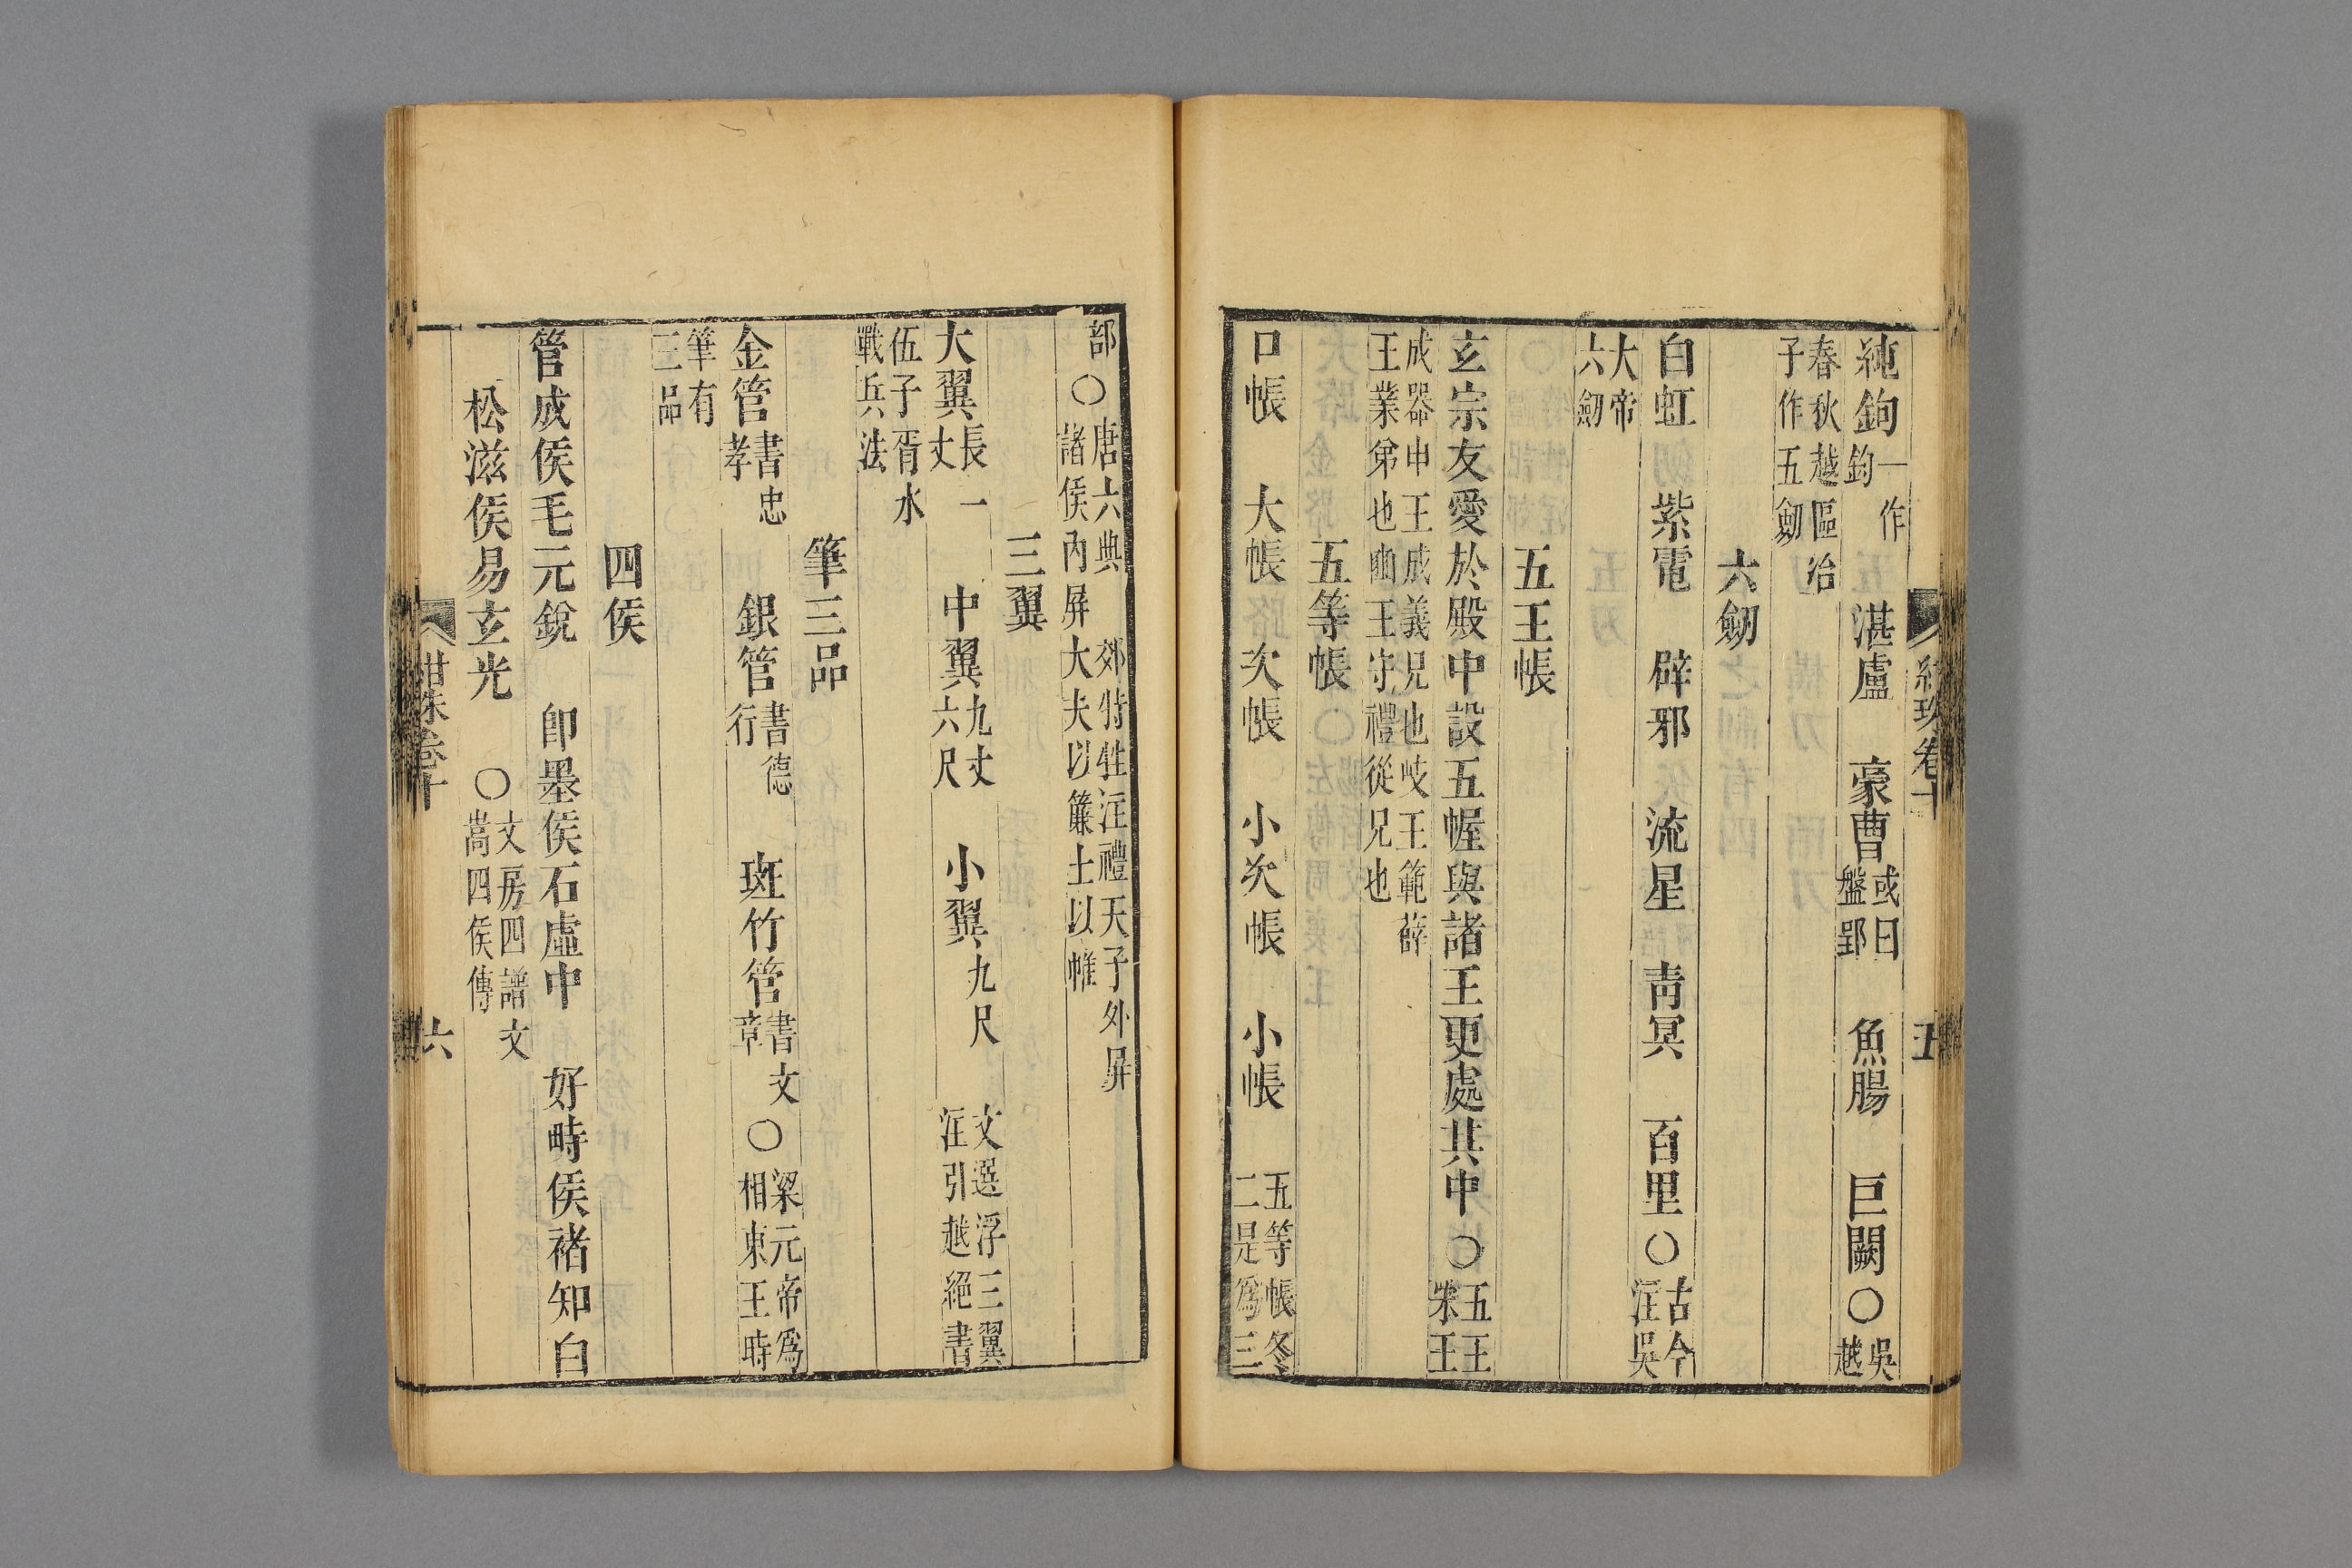 純鉤一作鈞 湛盧 豪曹或曰盤郢 魚腸 巨闕〇吳越
春秋越區冶子作五劒
六劒
白虹 紫電 辟邪 流星 靑冥 百里〇古今注吳
大帝六劒
五王帳
玄宗友愛於殿中設五幄與諸王更處其中〇五王宋王
成器申王成義兄也岐王範薛王業弟也豳王守禮從兄也
五等帳
口帳 大帳 次帳 小次帳 小帳 五等帳冬二是爲三
紺珠卷十 五
部〇唐六典諸侯內屏 郊特牲注禮天子外屏大夫以簾士以帷
三翼
大翼長一丈 中翼九丈六尺 小翼九尺 文選浮三翼注引越絕書
伍子胥水戰兵法
筆三品
金管書忠孝 銀管書德行 斑竹管書文章〇梁元帝爲相東王時
筆有三品
四侯
管成侯毛元銳 卽墨侯石虛中 好畤侯褚知白
松滋侯易玄光 〇文房四譜文嵩四侯傳
紺珠卷十 六